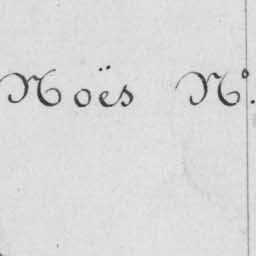 Noës N°.